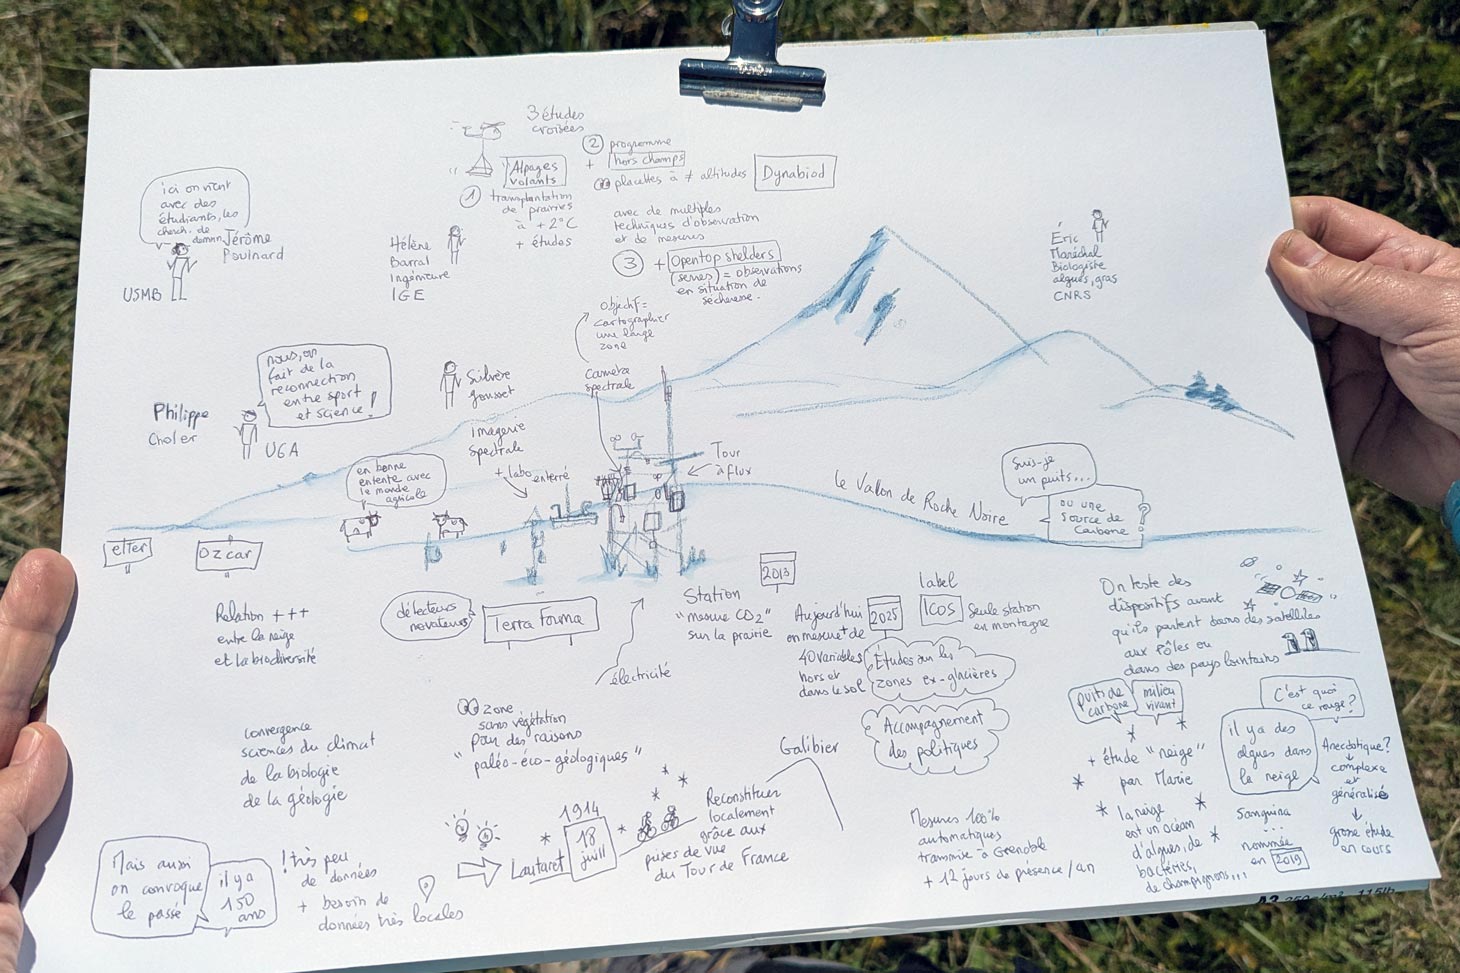 3 études
croisées
Alpages
volants
1
transplantation
de prairies
à +2°C
+ études
2 programme
+ hors champs
placettes à ≠ altitudes
Dynabiod
avec de multiples
techniques d'observation
et de mesures
3 + Opentop shelders
(serres) = observations
en situation de
sécheresse.
ici on vient
avec des
étudiants, les
cherch. de
demain
Jérôme
Poulnard
USMB
Hélène
Barral
Ingénieure
IGE
Éric
Maréchal
Biologiste
algues, gras
CNRS
objectif =
cartographier
une large
zone
camera
spectrale
nous, on
fait de la
reconnection
entre sport
et science !
Philippe
Choler
UGA
Silvère
Gousset
imagerie
spectrale
+ labo enterré
Tour
à flux
en bonne
entente avec
le monde
agricole
le Vallon de Roche Noire
Suis-je
un puits...
ou une
source de
carbone
?
elter
Ozcar
Relation +++
entre la neige
et la biodiversité
détecteurs
novateurs
Terra Forma
électricité
Station
"mesure CO2"
sur la prairie
2013
Aujourd'hui
2025
on mesure + de
40 variables
hors et
dans le sol
label
Icos
Seule station
en montagne
Études sur les
zones ex-glacières
Accompagnement
des politiques
On teste des
dispositifs avant
qu'ils partent dans des satellites
aux Pôles ou
dans des pays lointains
convergence
sciences du climat
de la biologie
de la géologie
zone
sans végétation
pour des raisons
"paléo-éco-géologiques"
Mais aussi
on convoque
le passé
il y a
150
ans
! très peu
de données
+ besoin de
données très locales
Lautaret
1914
18
juill
Reconstituer
localement
grâce aux
prises de vue
du Tour de France
Galibier
Mesures 100%
automatiques
transmise à Grenoble
+ 12 jours de présence/an
puits de
carbone
milieu
vivant
+ étude "neige"
par Marie
la neige
est un océan
d'algues, de
bactéries,
de champignons...
C'est quoi
ce rouge ?
il y a des
algues dans
la neige
Sanguina
...
nommée
en 2019
Anecdotique ?
complexe
et
généralisé
grosse étude
en cours